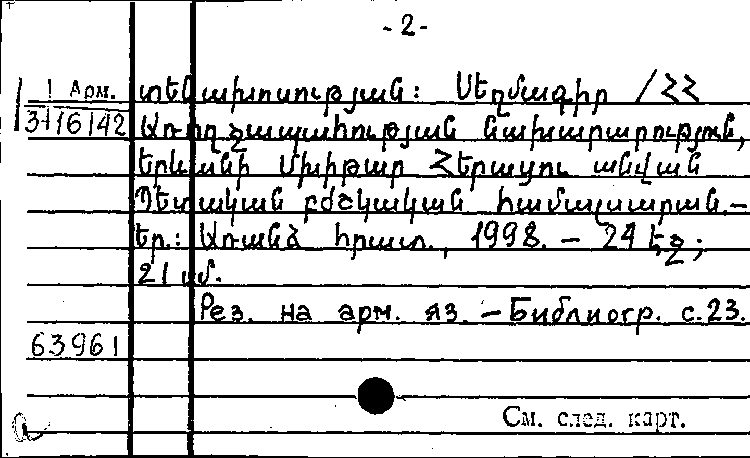 -2-
1 Арм. տենախոսության: Սեղմագիր /ՀՀ
3-116142 Առողջապահության նախարարություն,
Երևանի Մխիթար Հերացու անվան
Պետական բժշկական համալսարան.–
Եր.: Առանձ հրատ., 1998. – 24 էջ;
21 սմ.
Рез. на арм. яз. – Библиогр. с.23.
63961
См. след. карт.